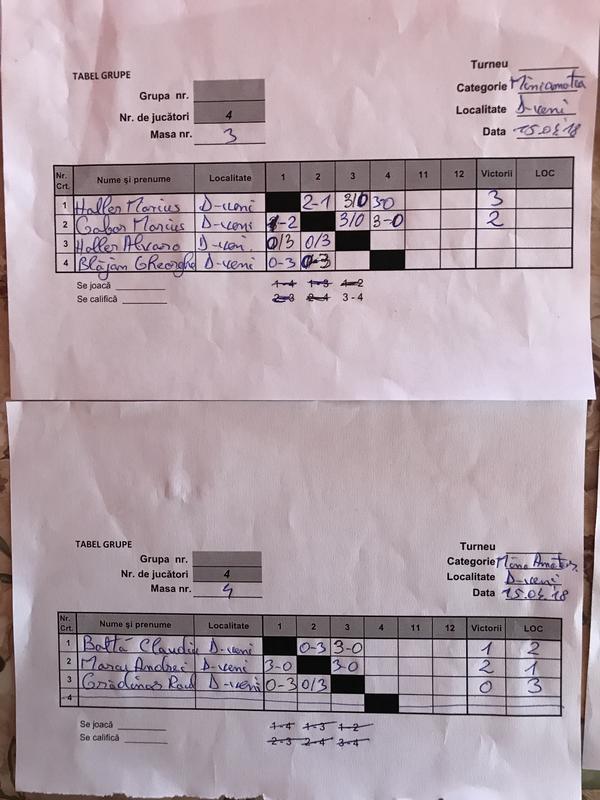 Turneu
TABEL GRUPE
Categorie Miniamotea
Grupa nr.
Localitate D-veni
Nr. de jucători 4
Data 15.04.18
Masa nr. 3
Nr. Crt. Nume și prenume Localitate 1 2 3 4 11 12 Victorii LOC
1 Haller Marius D-veni 2-1 3/0 3-0 3
2 Gabor Marius D-veni 1-2 3/0 3-0 2
3 Haller Alvaro D-veni. 0/3 0/3
4 Blăjan Gheorghe D-veni 0-3 0-3
Se joacă 1-4 1-3 1-2
Se califică 2-3 2-4 3-4
Turneu
TABEL GRUPE
Categorie Mini Amatori
Grupa nr.
Localitate D-veni
Nr. de jucători 4
Data 15.04.18
Masa nr. 4
Nr. Crt. Nume și prenume Localitate 1 2 3 4 11 12 Victorii LOC
1 Baltă Claudiu D-veni 0-3 3-0 1 2
2 Marcu Andrei D-veni 3-0 3-0 2 1
3 Grădinar Raul D-veni 0-3 0/3 0 3
4
Se joacă 1-4 1-3 1-2
Se califică 2-3 2-4 3-4